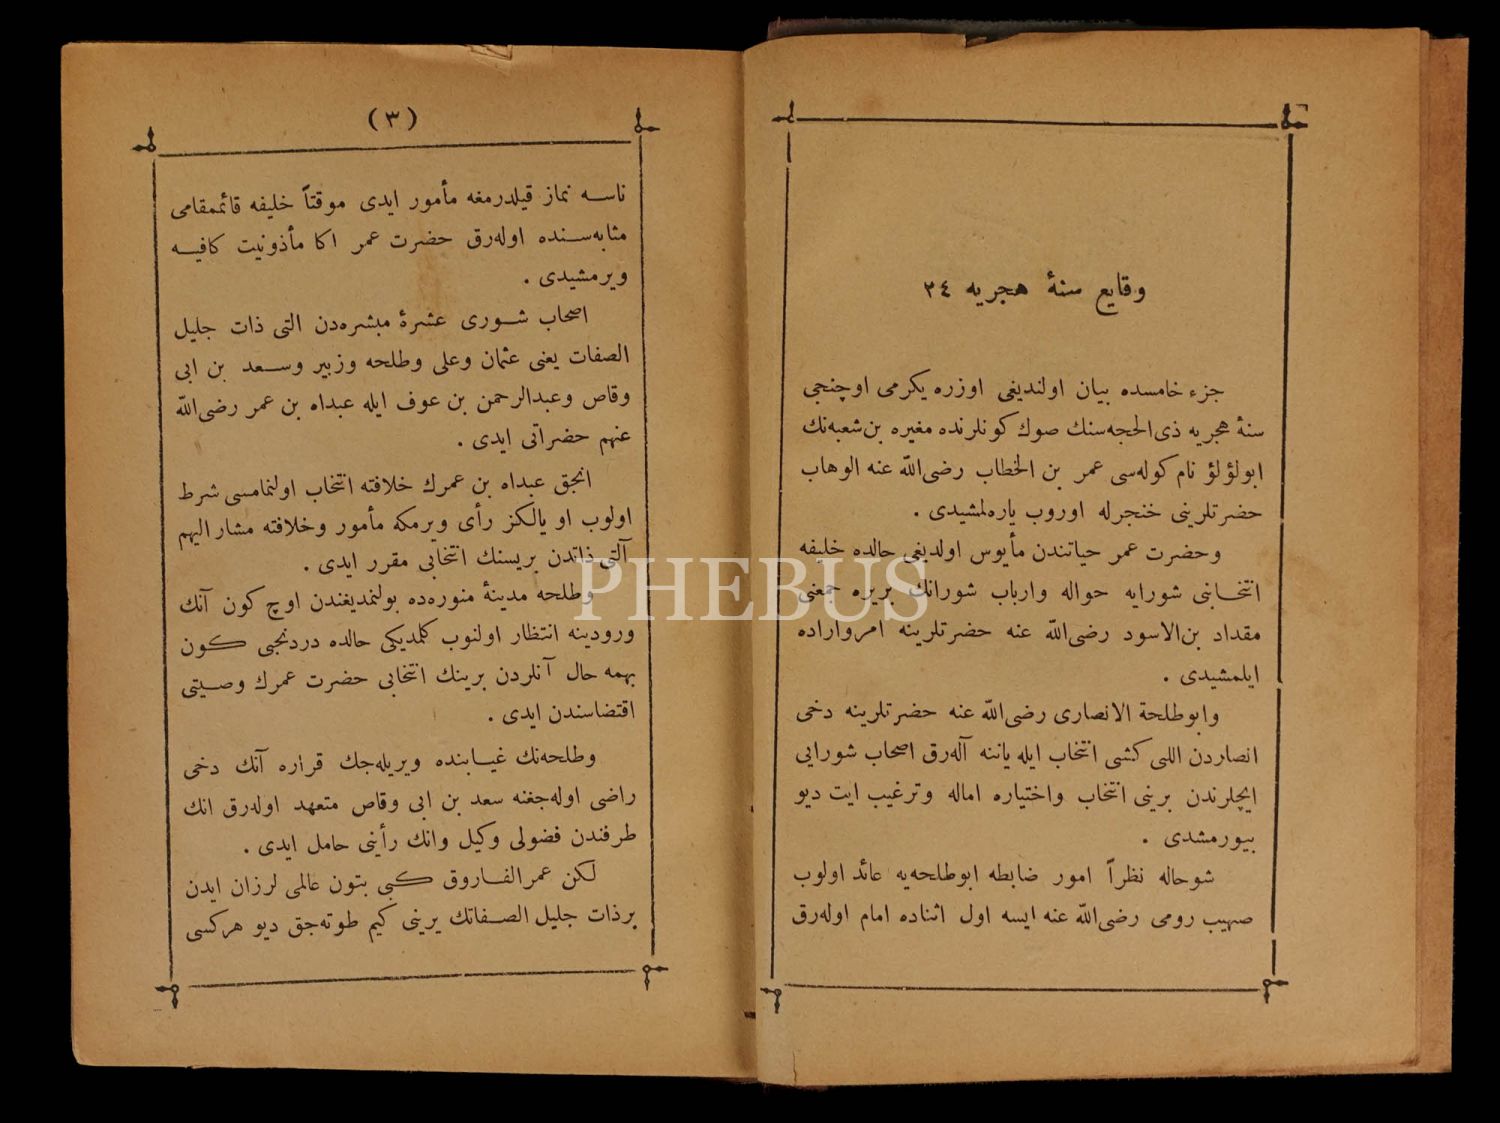 وقایع سنۀ هجریه ٢٤
جزء خامسده بیان اولندیغی اوزره یکرمی اوچنجی
سنۀ هجریه ذی‌الحجه‌سنك صوك كونلرنده مغیره بن‌شعبه‌نك
ابولؤلؤ نام كوله‌سی عمر بن الخطاب رضی‌الله عنه الوهاب
حضرتلرینی خنجرله اوروب یاره‌لمشیدی .
وحضرت عمر حیاتندن مأیوس اولدیغی حالده خلیفه
انتخابنی شورایه حواله وارباب شورانك بریره جمعنی
مقداد بن‌الاسود رضی‌الله عنه حضرتلرینه امرواراده
ایلمشیدی .
وابوطلحة الانصاری رضی‌الله عنه حضرتلرینه دخی
انصاردن اللی كشی انتخاب ایله یاننه آله‌رق اصحاب شورایی
ایچلرندن برینی انتخاب واختیاره اماله وترغیب ایت دیو
بیورمشدی .
شوحاله نظراً امور ضابطه ابوطلحه‌یه عائد اولوب
صهیب رومی رضی‌الله عنه ایسه اول اثناده امام اوله‌رق
(٣)
ناسه نماز قیلدرمغه مأمور ایدی موقتاً خلیفه قائممقامی
مثابه‌سنده اوله‌رق حضرت عمر اكا مأذونیت كافیه
ویرمشیدی .
اصحاب شوری عشرۀ مبشره‌دن التی ذات جلیل
الصفات یعنی عثمان وعلی وطلحه وزبیر وسعد بن ابی
وقاص وعبدالرحمن بن عوف ایله عبداه بن عمر رضی‌الله
عنهم حضراتی ایدی .
انجق عبداه بن عمرك خلافته انتخاب اولنمامسی شرط
اولوب او یالكز رأی ویرمكه مأمور وخلافته مشار الیهم
آلتی ذاتدن بریسنك انتخابی مقرر ایدی .
وطلحه مدینۀ منوره‌ده بولنمدیغندن اوچ كون آنك
ورودینه انتظار اولنوب كلمدیكی حالده دردنجی كون
بهمه حال آنلردن برینك انتخابی حضرت عمرك وصیتی
اقتضاسندن ایدی .
وطلحه‌نك غیابنده ویریله‌جك قراره آنك دخی
راضی اوله‌جغنه سعد بن ابی وقاص متعهد اوله‌رق انك
طرفندن فضولی وكیل وانك رأینی حامل ایدی .
لكن عمرالفاروق كبی بتون عالمی لرزان ایدن
برذات جلیل الصفاتك یرینی كیم طوته‌جق دیو هركسی
PHEBUS